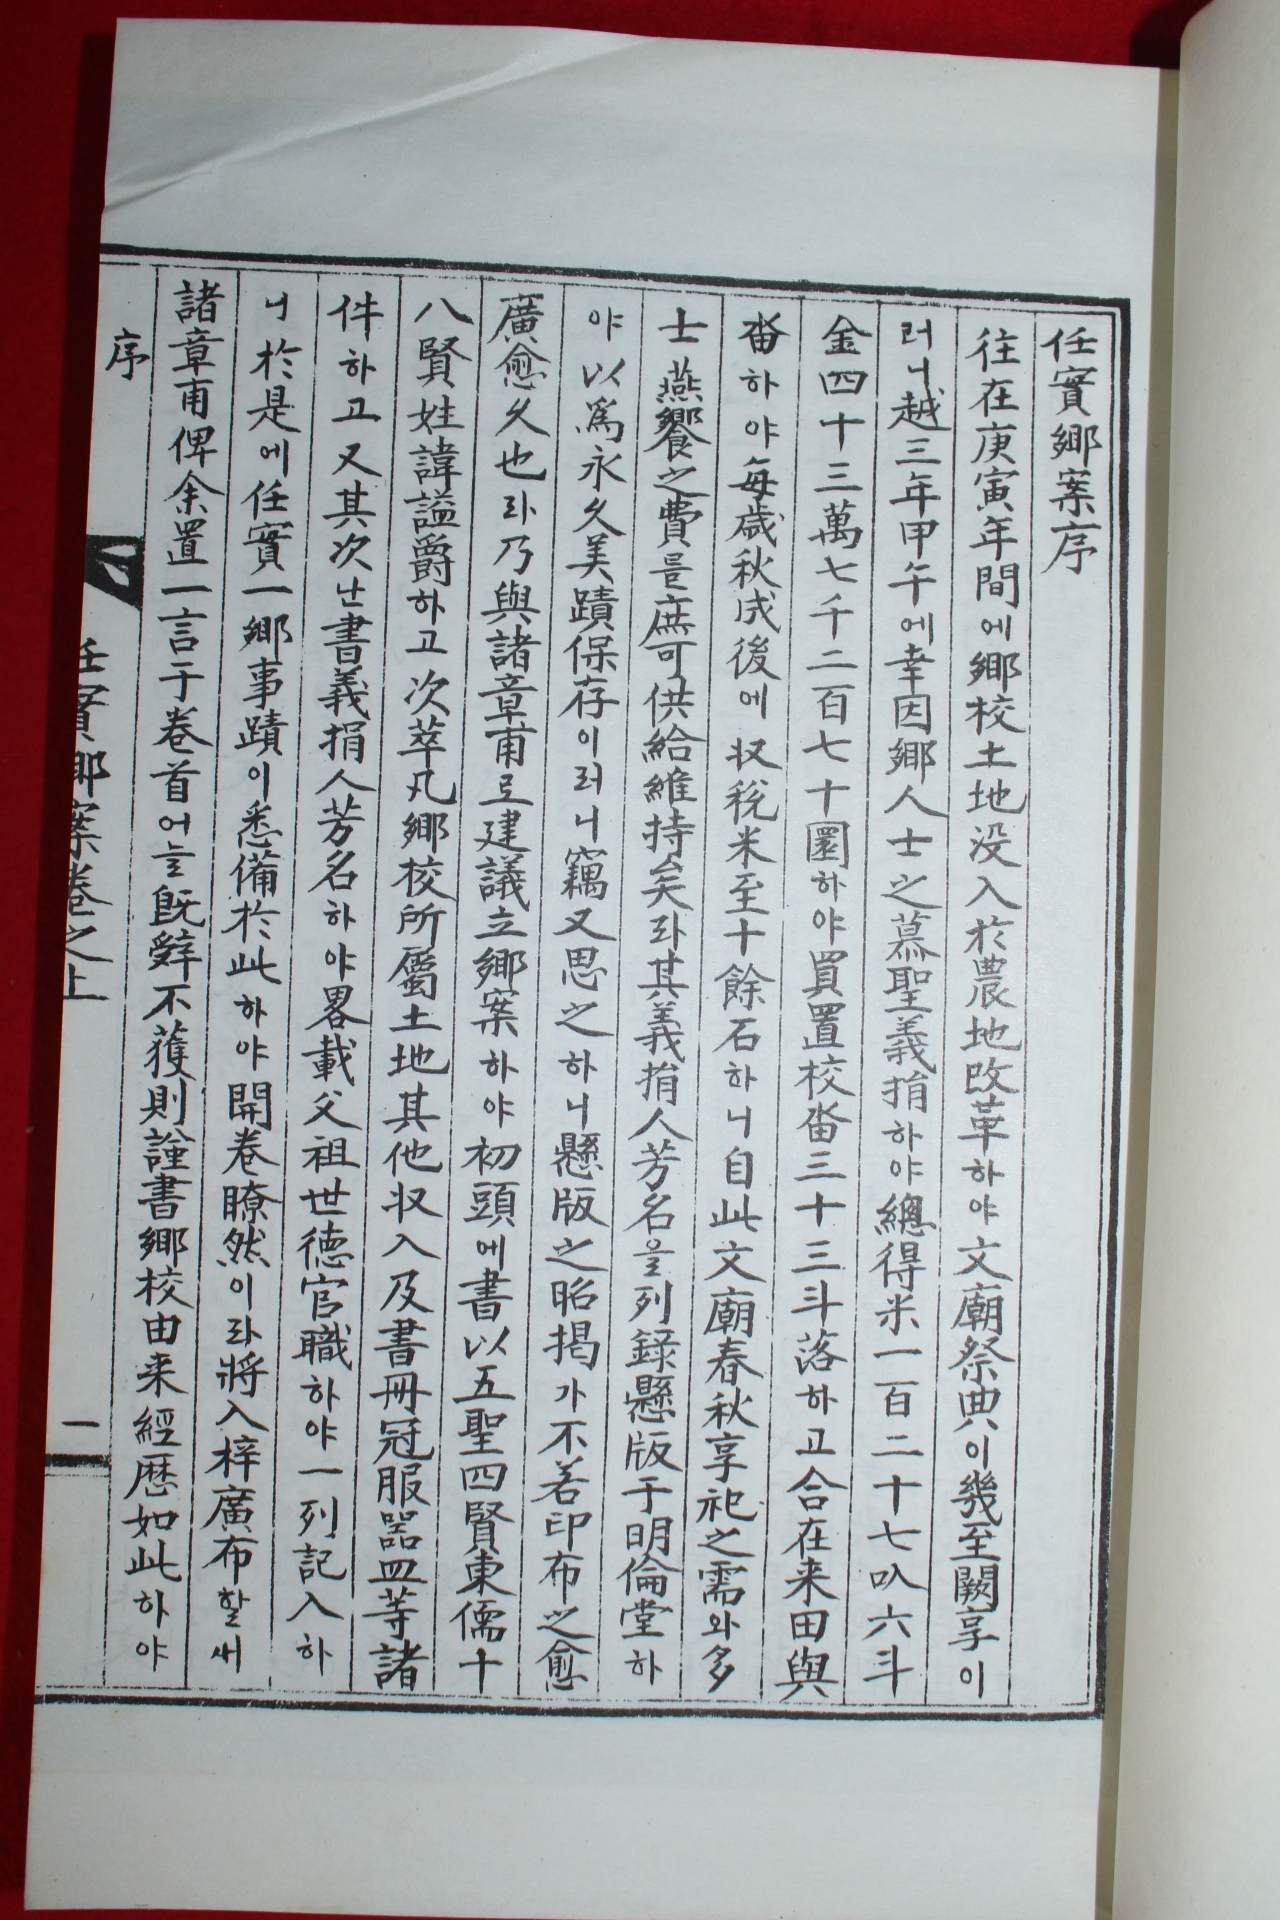 任實鄕案序
往在庚寅年間에鄕校土地没入於農地改革하야文廟祭典이幾至闕享이
러니越三年甲午에幸因鄕人士之慕聖義捐하야總得米一百二十七叺六斗
金四十三萬七千二百七十圜하야買置校畓三十三斗落하고合在来田與
畓하야每歲秋成後에收稅米至十餘石하니自此文廟春秋享祀之需와多
士燕饗之費를庶可供給維持矣라其義捐人芳名을列錄懸版于明倫堂하
야以爲永久美蹟保存이러니竊又思之하니懸版之昭揭가不若印布之愈
廣愈久也라乃與諸章甫로建議立鄕案하야初頭에書以五聖四賢東儒十
八賢姓諱謚爵하고次萃凡鄕校所屬土地其他收入及書冊冠服器皿等諸
件하고又其次난書義捐人芳名하야畧載父祖世德官職하야一列記入하
니於是에任實一鄕事蹟이悉備於此하야開卷瞭然이라將入梓廣布할새
諸章甫俾余置一言于卷首어늘旣辭不獲則謹書鄕校由来經歷如此하야
序
任實鄕案卷之上
一